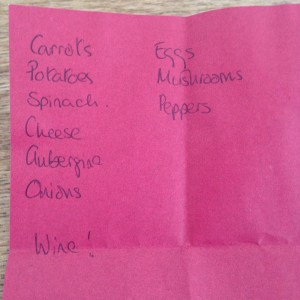 Carrots
Potatoes
Spinach.
Cheese
Aubergine
Onions
Wine!
Eggs
Mushrooms
Peppers